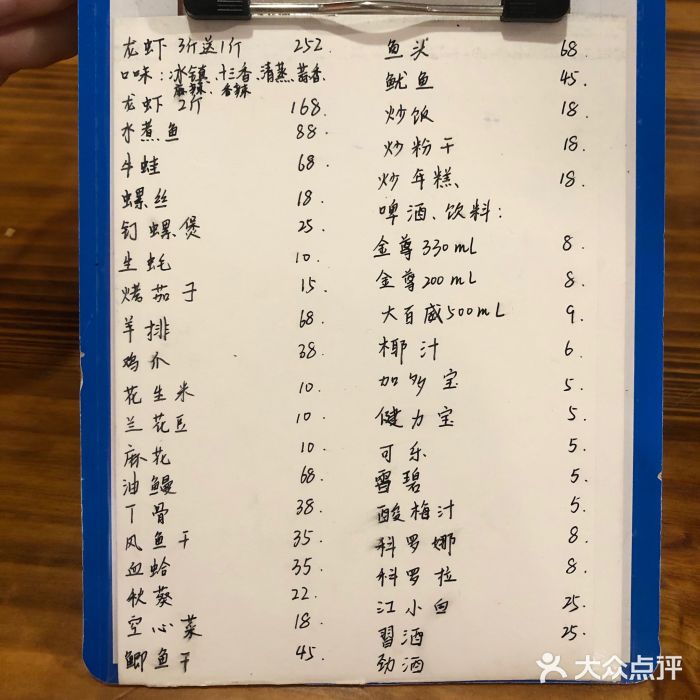 龙虾 3斤送1斤 252.
口味：冰镇、十三香、清蒸、蒜香、
麻辣、香辣
龙虾 2斤 168.
水煮鱼 88.
牛蛙 68.
螺丝 18.
钉螺煲 25.
生蚝 10.
烤茄子 15.
羊排 68.
鸡爪 38.
花生米 10.
兰花豆 10.
麻花 10.
油鳗 68.
丁骨 38.
风鱼干 35.
血蛤 35.
秋葵 22.
空心菜 18.
鲫鱼干 45.
鱼头 68.
鱿鱼 45.
炒饭 18.
炒粉干 18.
炒年糕 18.
啤酒、饮料：
金尊330mL 8.
金尊200mL 8.
大百威500mL 9.
椰汁 6.
加多宝 5.
健力宝 5.
可乐 5.
雪碧 5.
酸梅汁 5.
科罗娜 8.
科罗拉 8.
江小白 25.
習酒 25.
劲酒
大众点评